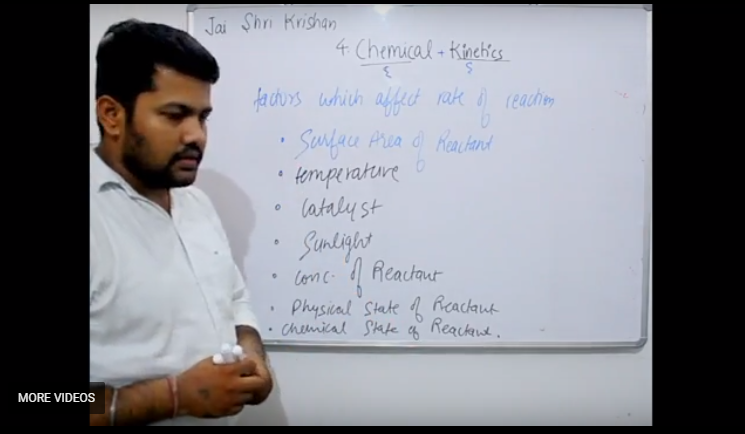 Jai Shri Krishan
4. Chemical + Kinetics
factors which affect rate of reaction
• Surface Area of Reactant
• temperature
• Catalyst
• Sunlight
• Conc. of Reactant
• Physical State of Reactant
• Chemical State of Reactant.
MORE VIDEOS